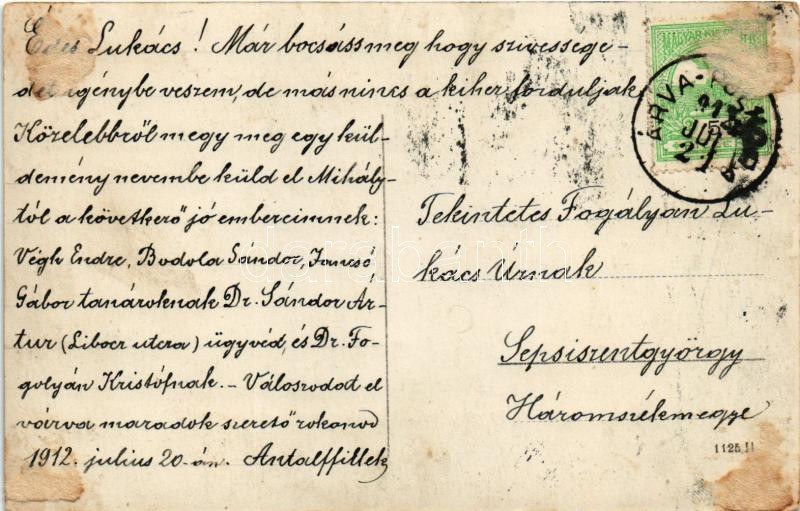 Édes Lukács! Már bocsáss meg hogy szivessége-
det igénybe veszem, de más nincs a kihez forduljak
Közelebbről megy meg egy kül-
demény nevembe küld el Mihály-
tól a következő jó embereimnek:
Végh Endre, Bodola Sándor, Jancsó
Gábor tanároknak Dr. Sándor Ar-
tur (Libocz utcza) ügyvéd, és Dr. Fo-
golyán Kristófnak. – Válaszodat el
várva maradok szerető rokonod
1912. július 20-án. Antalffillek
Tekintetes Fogályan Lu-
kács Úrnak
Sepsiszentgyörgy
Háromszékmegye
ÁRVA-
JUL
21
1125 II